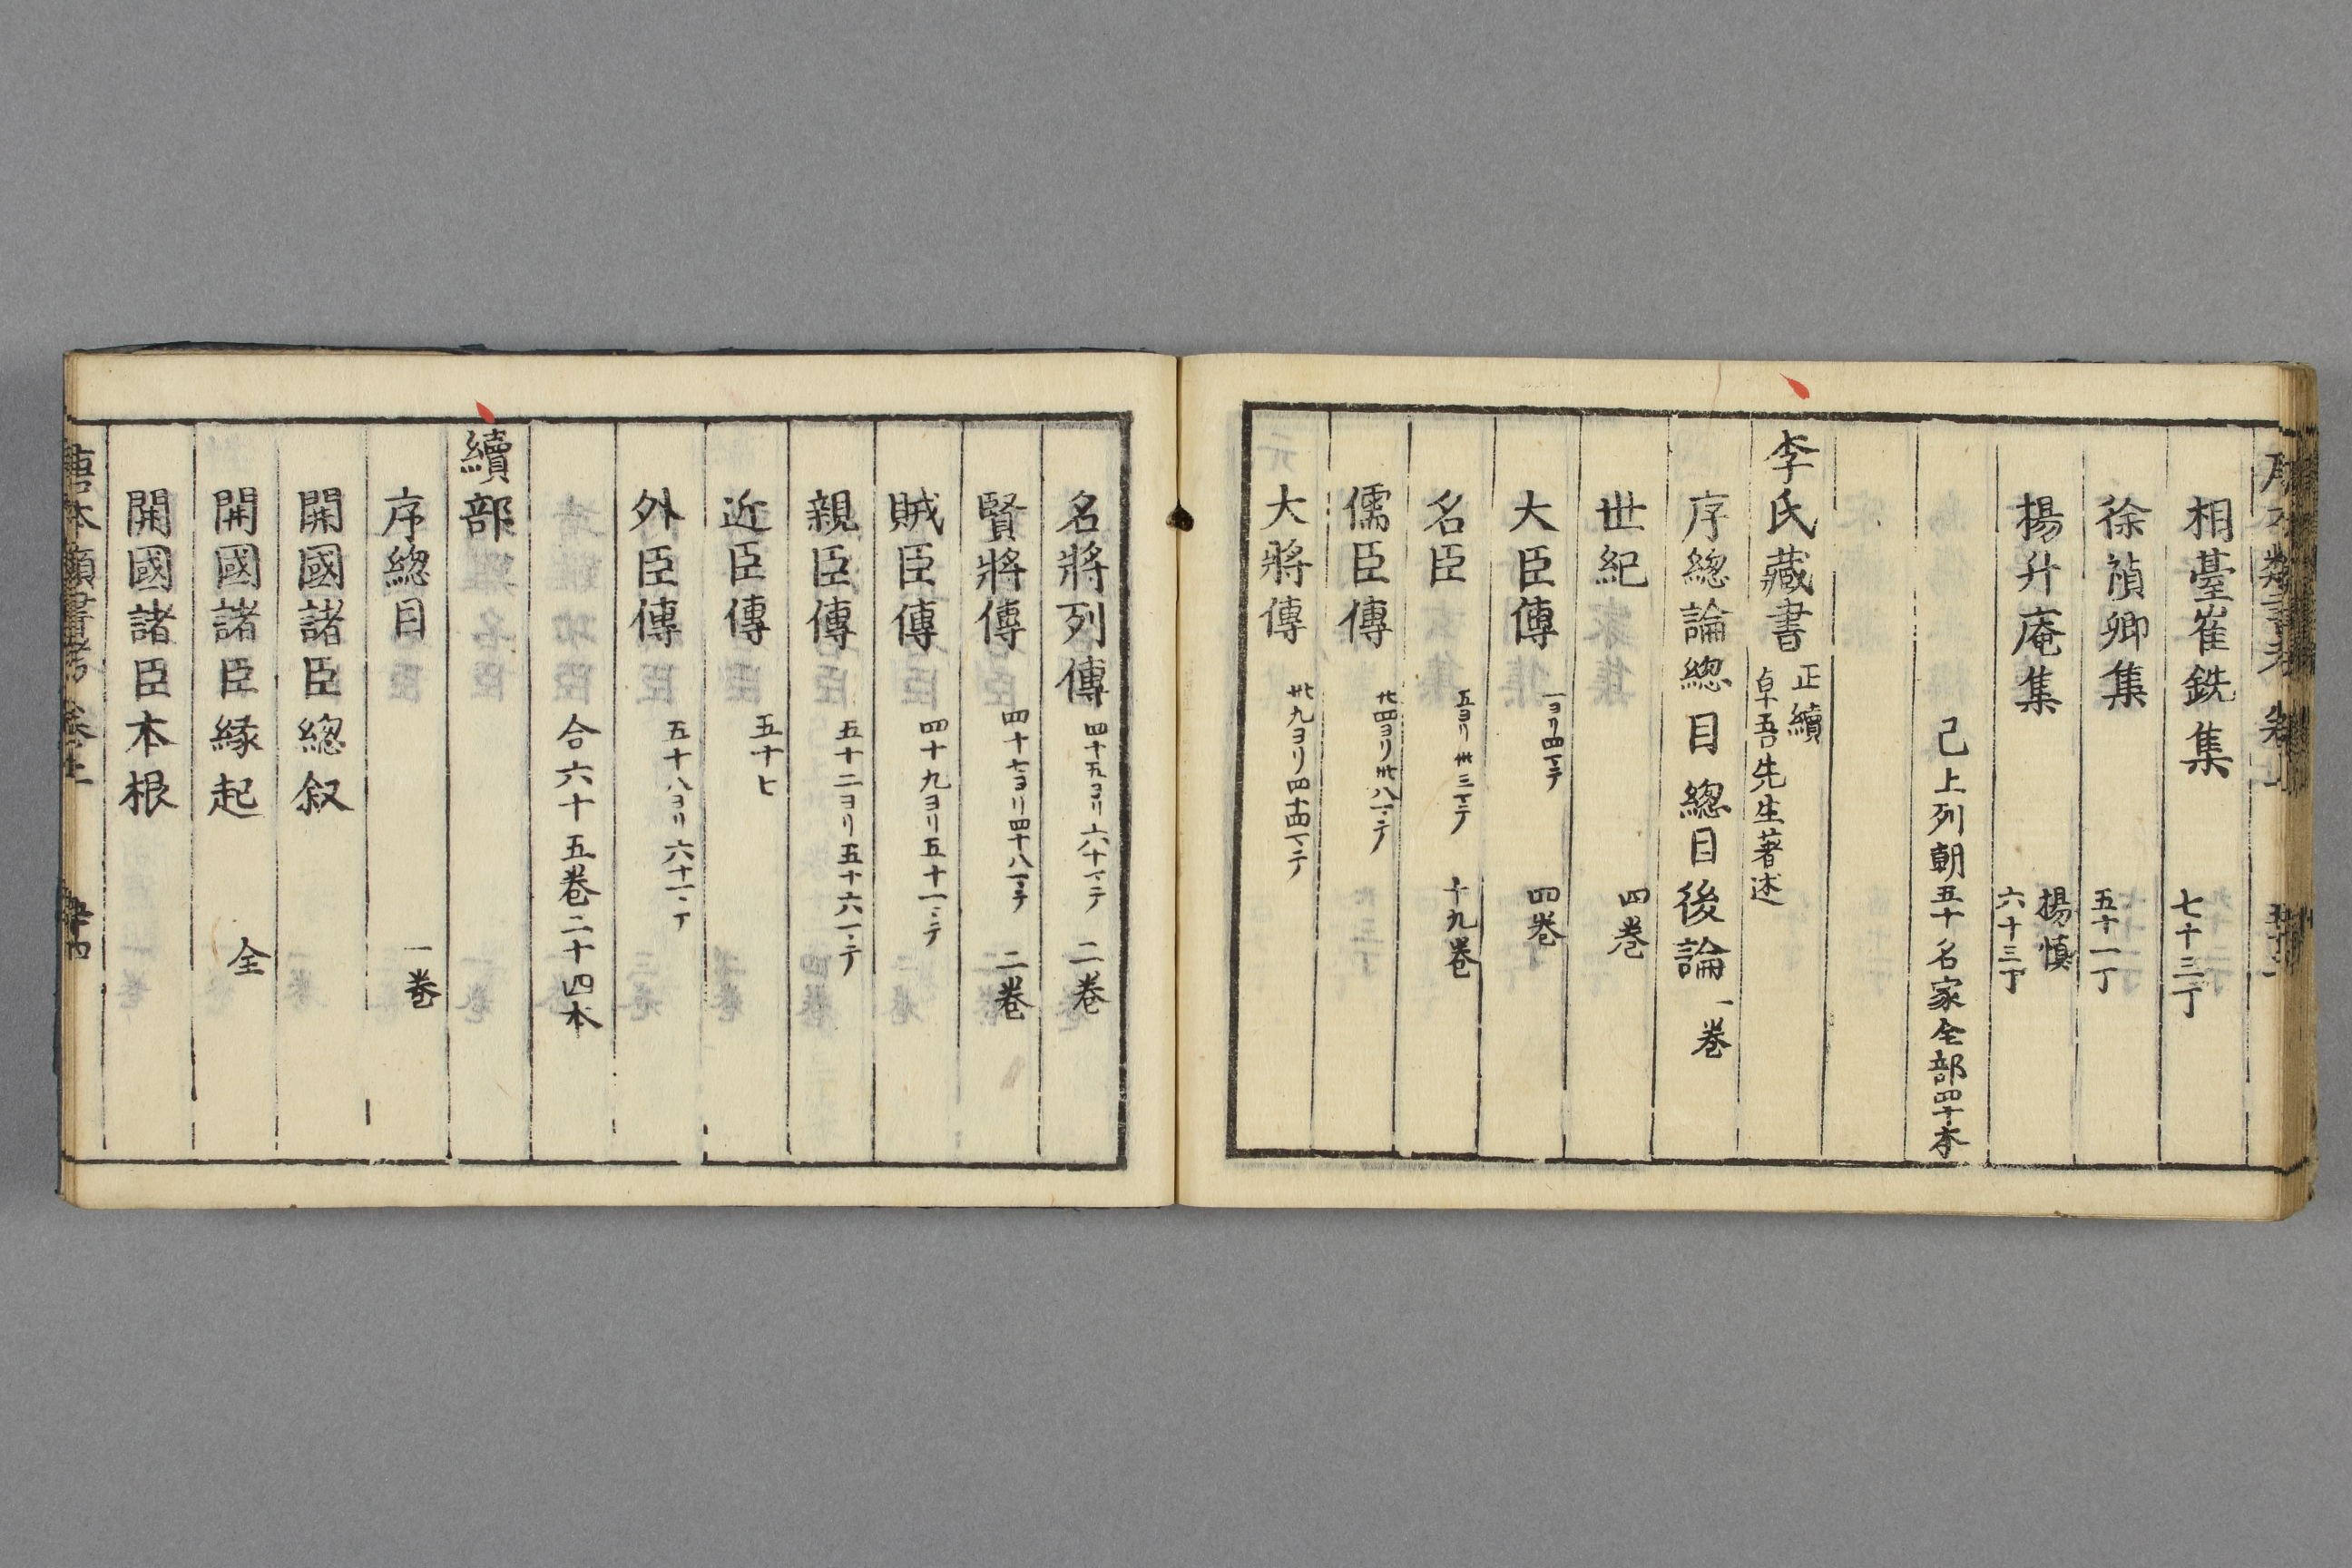 相臺崔銑集 七十三丁
徐禎卿集 五十一丁
楊升庵集 楊慎 六十三丁
己上列朝五十名家全部四十本
李氏藏書 正續 卓吾先生著述
序總論總目總目後論 一卷
世紀 四卷
大臣傳 一ヨリ四マテ 四卷
名臣 五ヨリ卅三マテ 十九卷
儒臣傳 廿四ヨリ卅八マテ
大將傳 卅九ヨリ四十四マテ
名將列傳 四十五ヨリ六十マテ 二卷
賢將傳 四十七ヨリ四十八マテ 二卷
賊臣傳 四十九ヨリ五十一マテ
親臣傳 五十二ヨリ五十六マテ
近臣傳 五十七
外臣傳 五十八ヨリ六十マテ
合六十五卷二十四本
續部
序總目 一卷
開國諸臣總叙
開國諸臣緣起 全
開國諸臣本根
唐本類書考 卷上